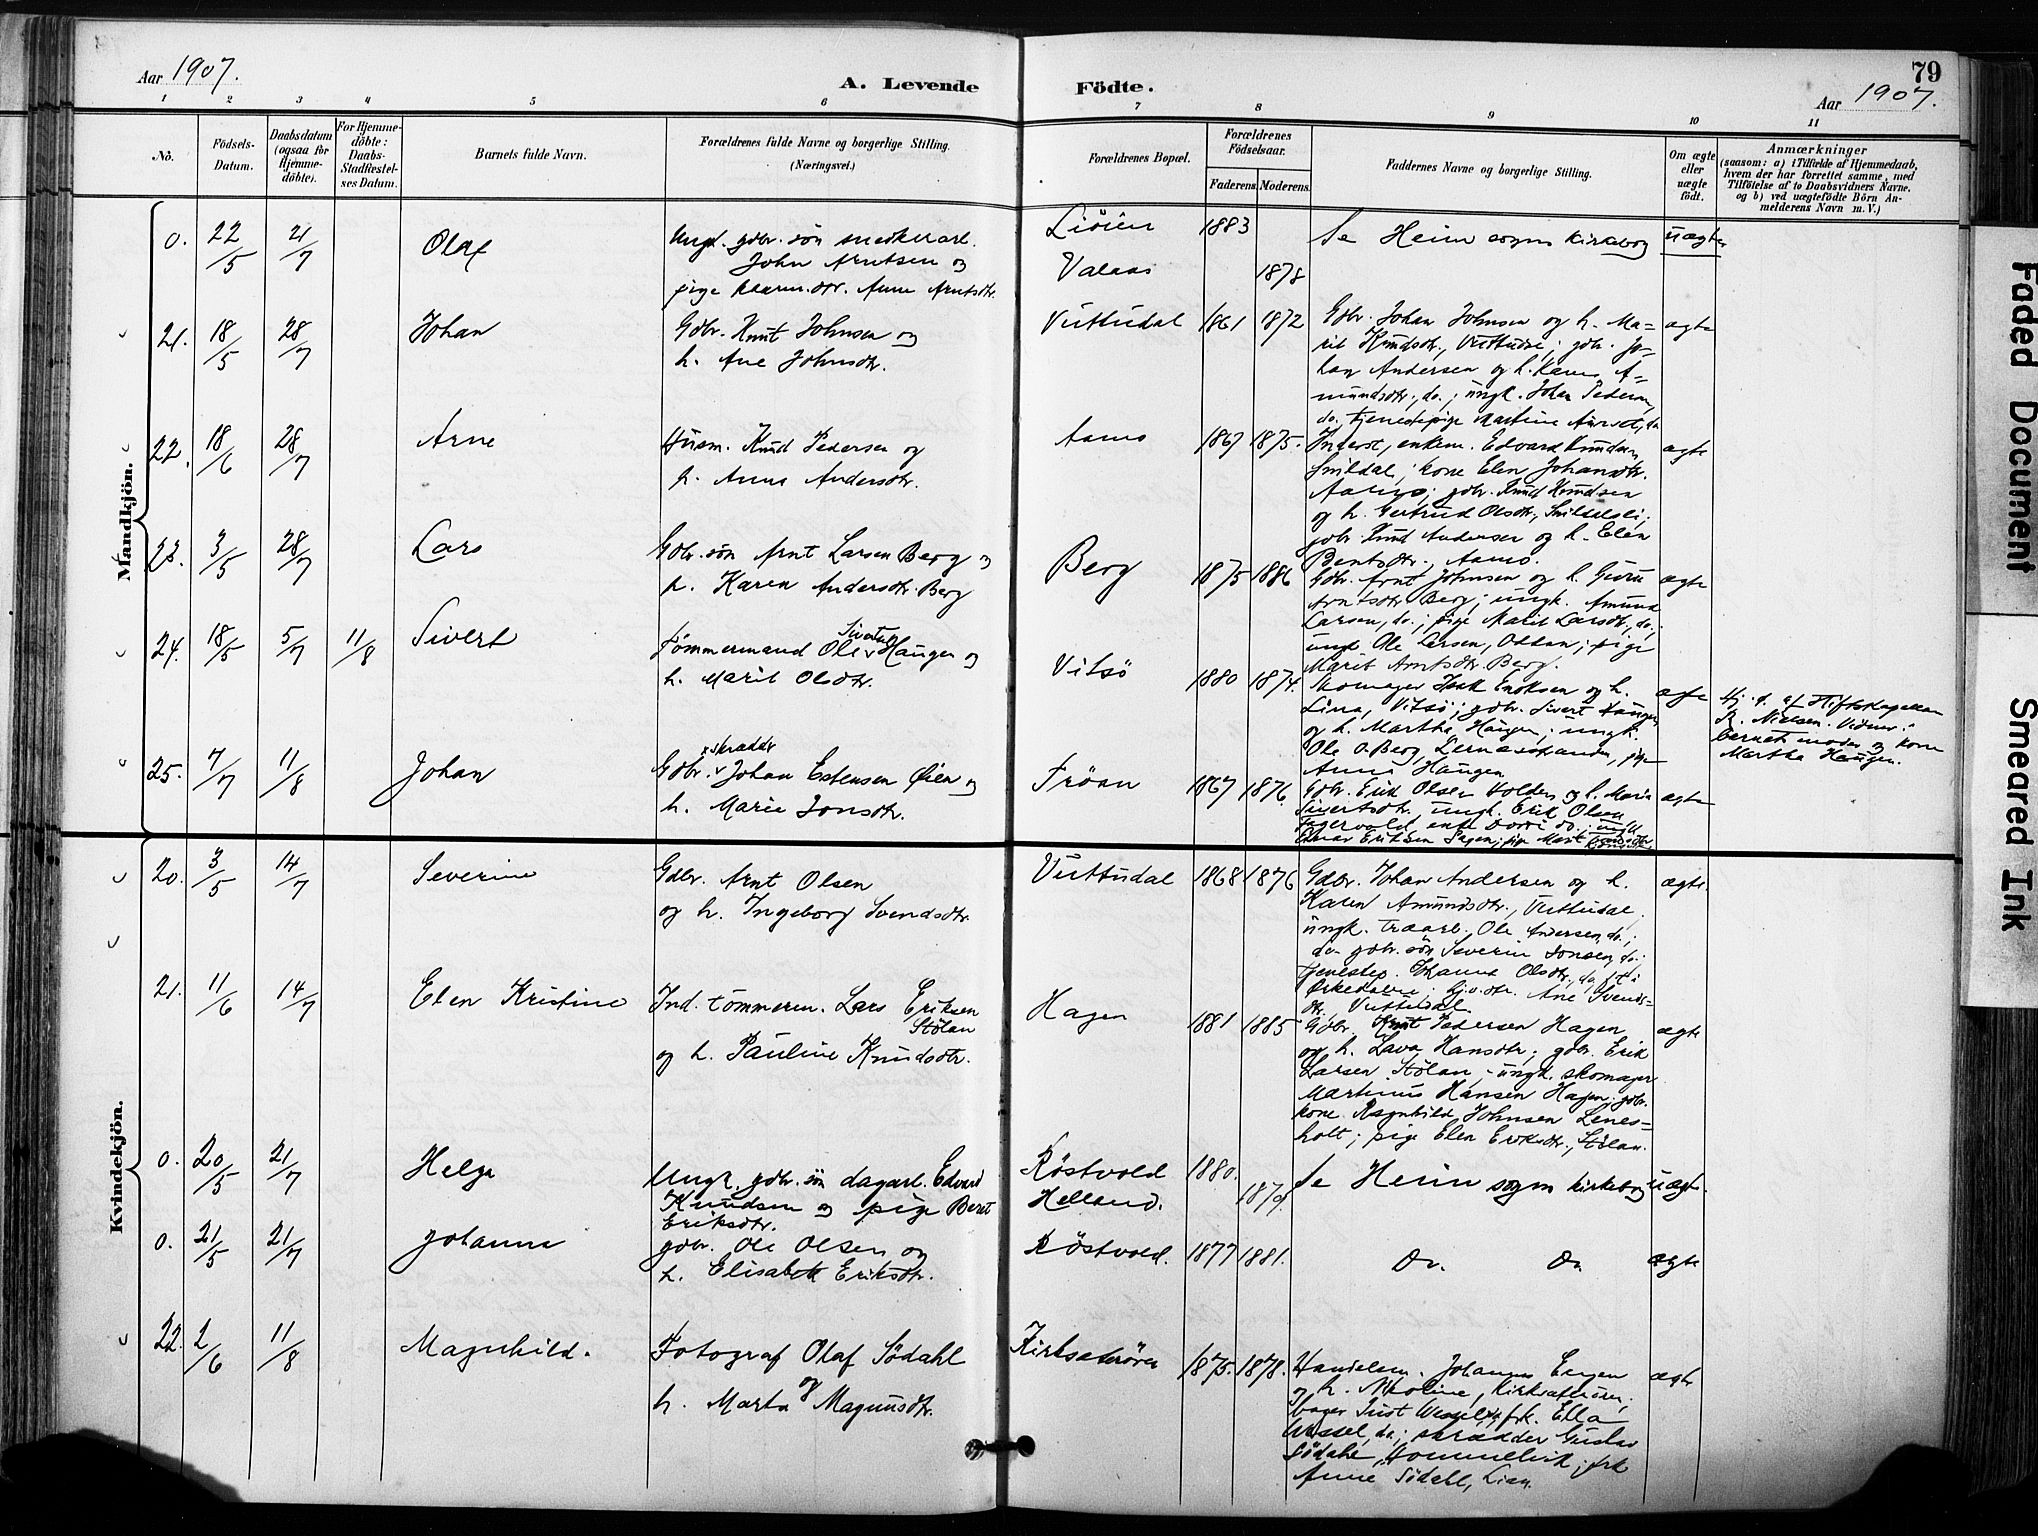 Aar 1907.
A. Levende
Födte.
79
Aar 1907.
1 2 3 4 5 6 7 8 9 10 11
No.
Födsels-Datum.
Daabsdatum (ogsaa for Hjemme-döbte).
For Hjemme-döbte: Daabs-Stadfæstel-ses Datum.
Barnets fulde Navn.
Forældrenes fulde Navne og borgerlige Stilling. (Næringsvei.)
Forældrenes Bopæl.
Forældrenes Födselsaar.
Faderens. Moderens.
Faddernes Navne og borgerlige Stilling.
Om ægte eller uægte födt.
Anmærkninger
(saasom: a) i Tilfælde af Hjemmedaab,
hvem der har forrettet samme, med
Tilföielse af to Daabsvidners Navne,
og b) ved uægtefödte Börn An-
melderens Navn m. V.)
Mandkjön.
0. 22/5 21/7 Olaf
Ungk. gdbr. sön snedkerarb.
John Arntsen og
pige Anne Arntsdtr.
Liöien 1883
Valaas 1878
Se Heim sogns kirkebog uægte
21. 18/5 28/7 Johan
Gdbr. Knut Johnsen og
h. Ane Johnsdtr.
Vuttudal 1861 1872
Gdbr. Johan Johnsen og h. Ma-
rit Knudsdtr., Vuttudal; gdbr. Jo-
han Andersen og h. Karen A-
mundsdtr., do.; ungk. Johan Pedersen,
do. tjenestepige Martine
ægte
22. 18/6 28/7 Arne
Husm. Knud Pedersen og
h. Anna Andersdtr.
Aamo 1867 1875.
Inderst, enkem. Edvard Knudsen
Snildal; kone Elen Johansdtr.
Aamo; gdbr. Knud Knudsen
og h. Gertrud Olsdtr., Snildalsli;
gdbr. Knut Andersen og h. Elen
Bentsdtr., Aamo.
ægte
23. 3/5 28/7 Lars
Gdbr. sön Arnt Larsen Berg og
h. Karen Andersdtr. Berg
Berg 1875 1886
Gdbr. Arnt Johnsen og h. Guru
Arntsdtr. Berg; ungk. Amund
Larsen, do.; pige Marit Larsdtr., do.;
ungk. Ole Larsen, ; pige
Marit Arntsdtr. Berg.
ægte
24. 18/5 5/7 11/8 Sivert
Tömmermand Ole Sivertsen Haugen og
h. Marit Olsdtr.
Vitsö 1880 1874.
Skomager Isak Enoksen og h.
Lina, Vitsö; gdbr. Sivert Haugen
og h. Martha Haugen; ungk.
Ole O. Berg, ; pige
Anna Haugen
ægte
Hj. d. af Stiftskapellan
R. Nielsen. Vidner:
barnets moder og kone
Martha Haugen.
25. 7/7 11/8 Johan
Gdbr. skrædder Johan Estensen Øien og
h. Marie Jonsdtr.
Fröan 1867 1876
Gdbr. Erik Olsen Holden og h. Marie
Sivertsdtr. ungk. Erik Olsen
Fagervold, enke do.; ungk.
Eriksen Sagen; pige Marit
ægte
Kvindekjön.
20. 3/5 14/7 Severine
Gdbr. Arnt Olsen
og h. Ingeborg Svendsdtr.
Vuttudal 1868 1876
Gdbr. Johan Andersen og h.
Karen Amundsdtr., Vuttudal.
ungk. træarb. Ole Andersen, do.;
do. gdbr. sön Severin Jonsen, do.;
tjenestep. Johanna Olsdtr., do., i
Orkedalen; gdbr. dtr. Ane Svends-
dtr. Vuttudal.
ægte
21. 11/6 14/7 Elen Kristine
Ind. tömmerm. Lars Eriksen
Stölan
og h. Pauline Knudsdtr.
Hagen 1881 1885
Gdbr. Knut Pedersen Hagen
og h. Lava Hansdtr; gdbr. Erik
Larsen Stölan, ungk. skomager
Martinus Hansen Hagen; gdbr.
kone Ragnhild Johnsen Lenes-
holt; pige Elen Eriksdtr., Stölan.
ægte
0. 20/5 21/7 Helga
Ungk. gdbr. sön dagarb. Edvard
Knudsen og pige Beret
Eriksdtr.
Röstvold 1880.
Helland. 1879.
Se Heim sogns kirkebog uægte
0. 21/5 21/7 Johanna
gdbr. Ole Olsen og
h. Elisabeth Eriksdtr.
Röstvold. 1877 1881.
Do. Do. ægte
22. 2/6 11/8 Magnhild.
Fotograf Olaf Södahl
og
h. Marta Magnusdtr.
Kirksæterören 1875. 1878.
Handelsm. Johannes Engen
og h. Nikoline, Kirksæterören.
bager Just Wessel, do; frk. Ella
Wessel, do.; skrædder Gustav
Södahl, Hommelvik; frk
Anne Södahl, Lian.
ægte
Faded Document
Smeared Ink